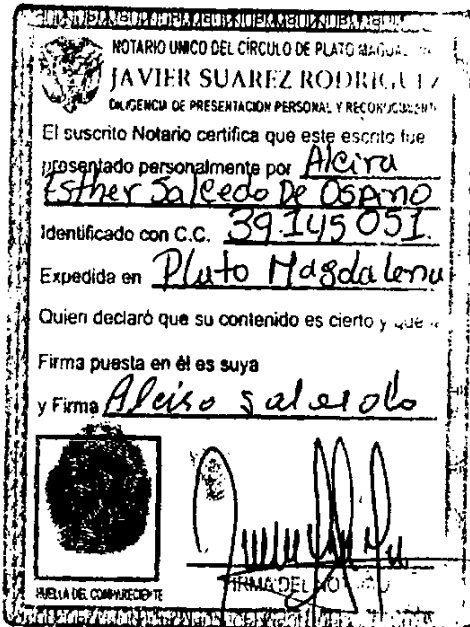 NOTARIO UNICO DEL CÍRCULO DE PLATO MAGDAL
JAVIER SUAREZ RODRIGUEZ
DILIGENCIA DE PRESENTACIÓN PERSONAL Y RECONOCIMIENTO
El suscrito Notario certifica que este escrito fue
presentado personalmente por Alcira
Esther Salcedo De Ospino
Identificado con C.C. 39.145 051.
Expedida en Plato Magdalena
Quien declaró que su contenido es cierto y que
Firma puesta en él es suya
y Firma Alciro salcedo
HUELLA DEL COMPARECIENTE
FIRMA DEL NOTARIO